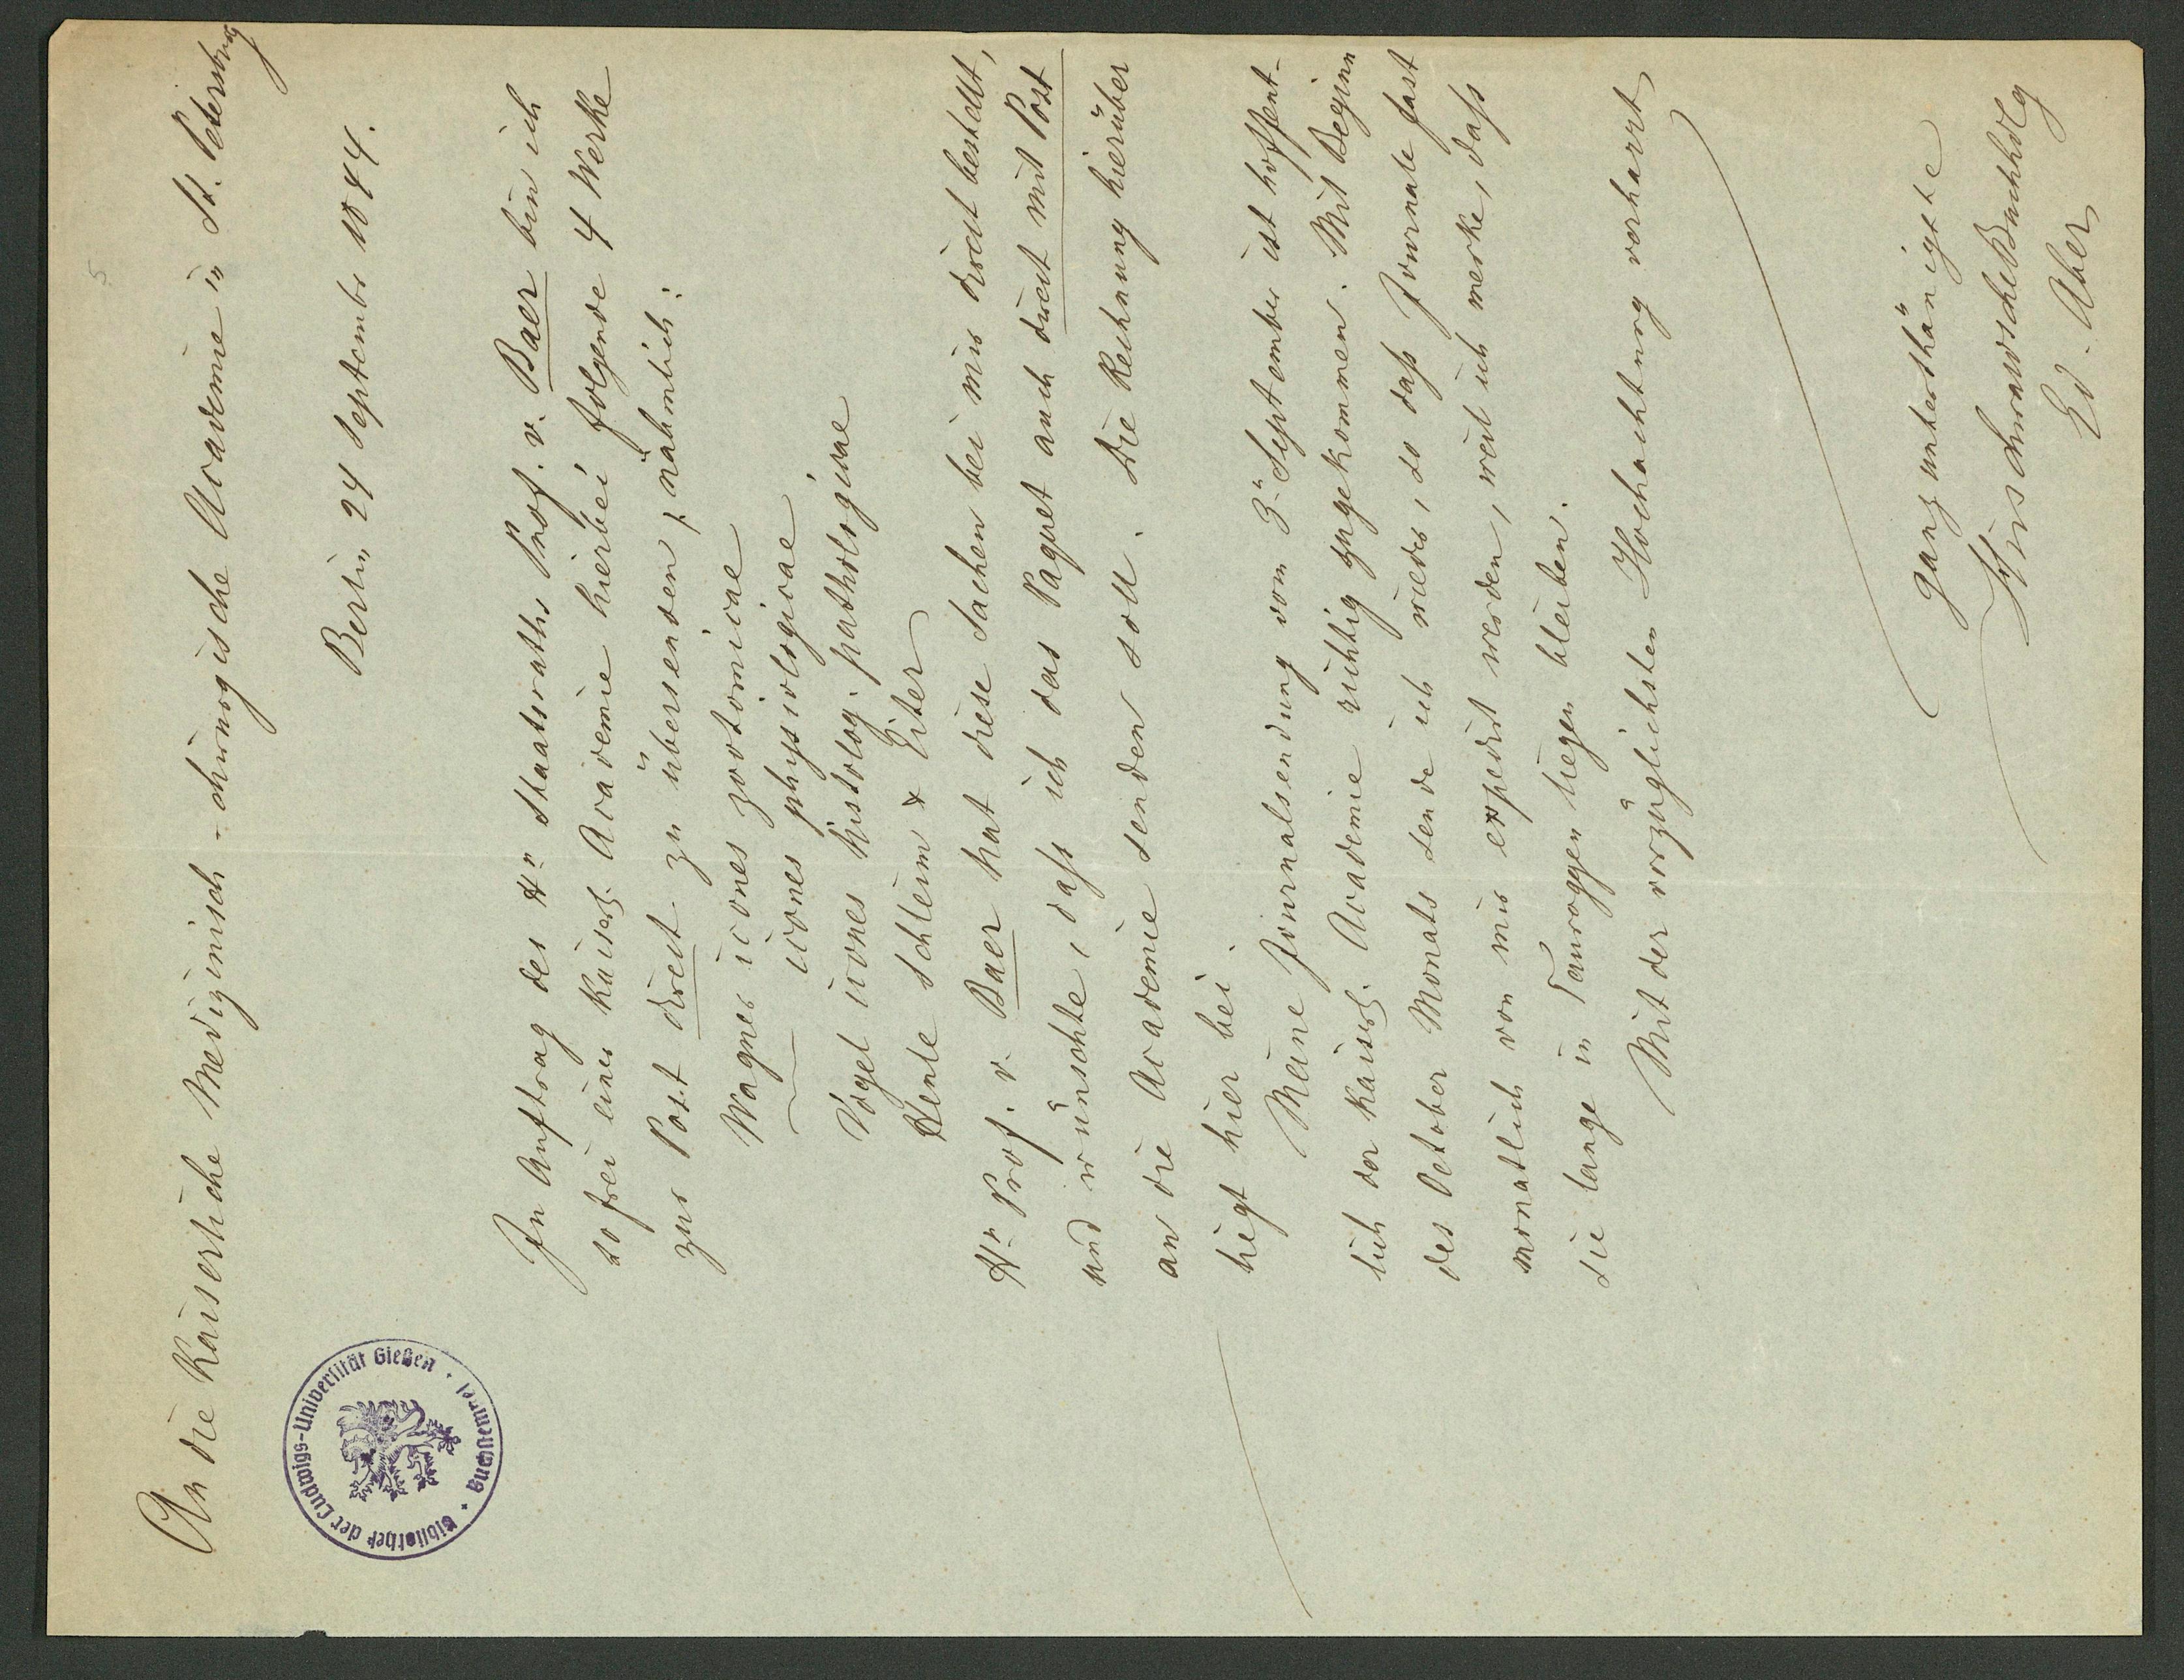 An die Kaiserliche Medizinisch-chirurgische Academie in St. Petersburg
Berlin 24 Septembr 1844.
Im Auftrag des Hn Staatsraths Prof. v. Baer bin ich
so frei einer Kaiserl. Academie hierbei folgende 4 Werke
zur Post direct zu übersenden, nähmlich:
Wagner icones zootomicae
— icones physiologicae
Vogel icones histolog. pathologicae
Henle Schleim & Eiter
Hn Prof. v. Baer hat diese Sachen bei mir direct bestellt,
und wünschte, daß ich das Paquet auch direct mit Post
an die Academie senden soll. Die Rechnung hierüber
liegt hier bei
Meine Journalsendung vom 3n September ist hoffent-
lich der Kaiserl. Academie richtig zugekommen. Mit Beginn
des October Monats sende ich wieder, so daß Journale fast
monatlich von mir expedirt werden, weil ich merke, daß
sie lange in Tauroggen liegen bleiben.
Mit der vorzüglichsten Hochachtung verharrt
ganz unterthänigste
Hirschwaldsche Buchhdlg
Ed. Aber
5
Bibliothek der Ludwigs-Universität Gießen · Buchstempel ·